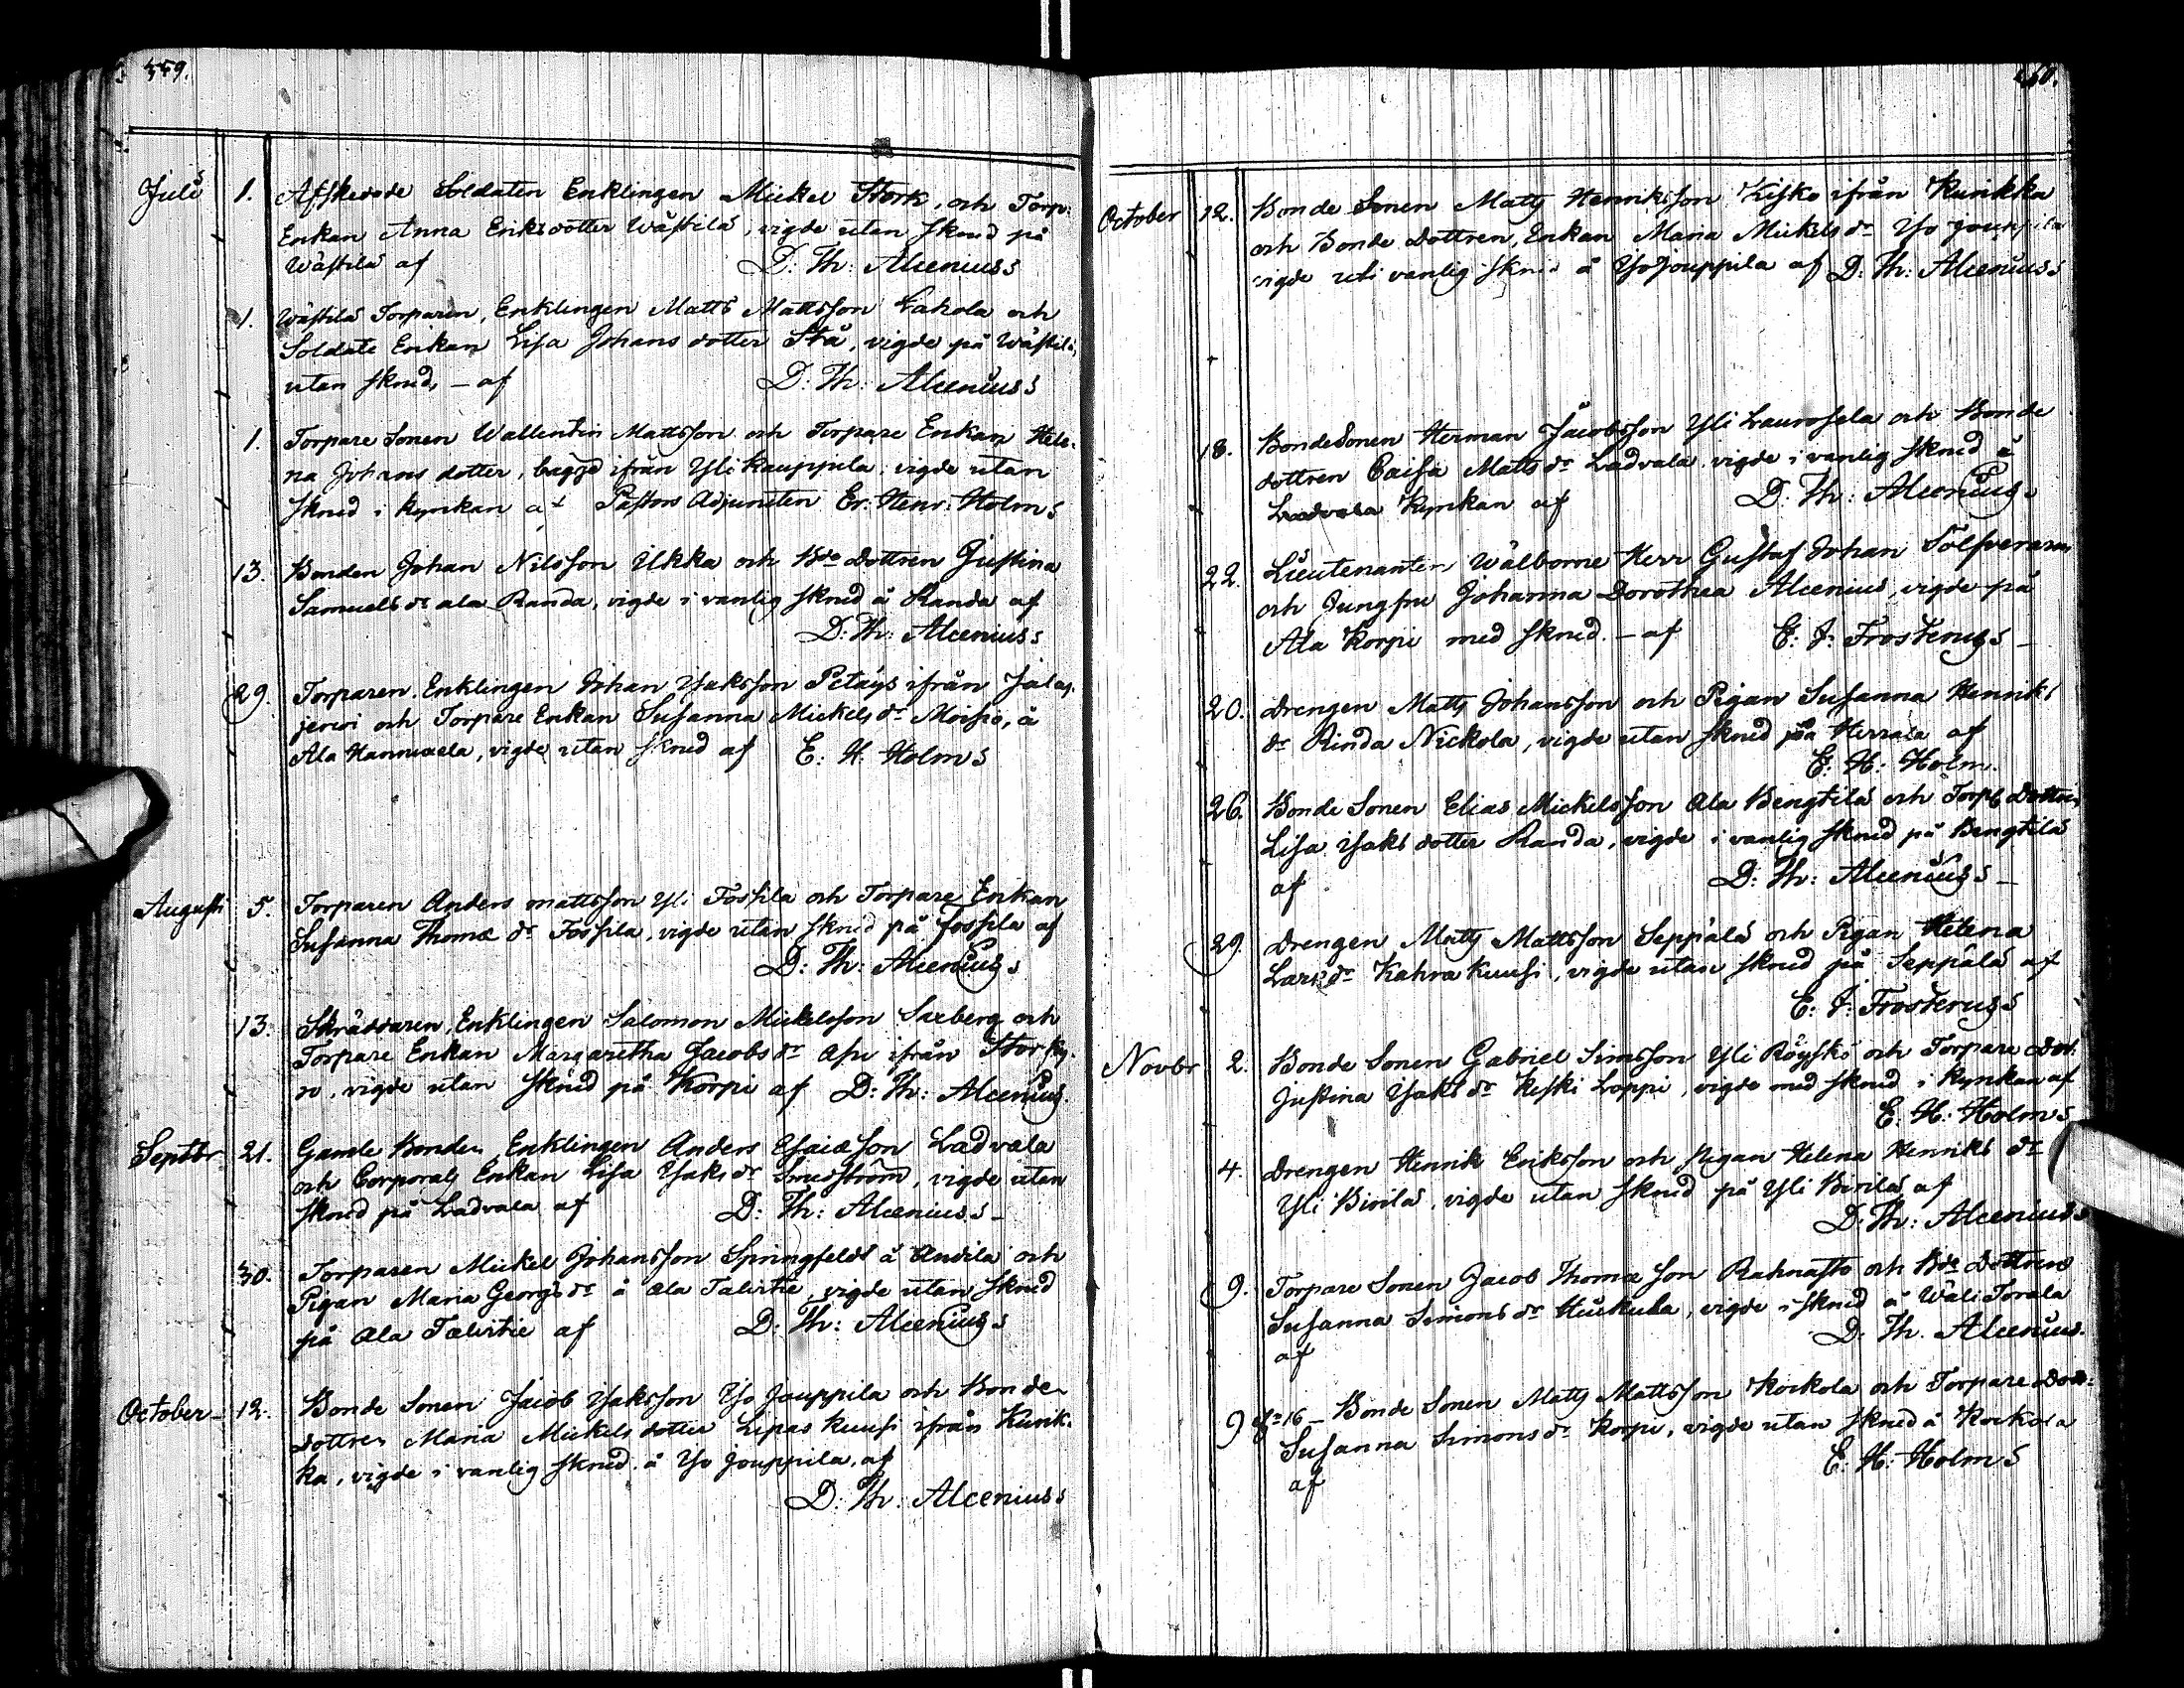 559.
Julii 1. Afskedade Soldaten Enklingen Mickel Stork, och Torp:
Enkan Anna Eriksdotter Wästilä, vigde utan skrud på
Wästilä af D: Th: Alcenius
1. Wästilä Torparen, Enklingen Matts Mattsson Lahola och
Soldate Enkan Lisa Johans dotter Stå, vigde på Wästilä,
utan skrud, – af D: Th: Alcenius
1. Torpare Sonen Wallentin Mattsson och Torpare Enkan Hele-
na Johans dotter, bägge ifrån Yli Kauppila, vigde utan
skrud i kyrkan af Pastors Adjuncten Er: Henr: Holm
13. Bonden Johan Nilsson Ukka och Bde Dottren Justina
Samuels dr ala Randa, vigde i vanlig skrud å Randa af
D: Th: Alcenius
29. Torparen, Enklingen Johan Ysaksson Petäys ifrån Jalas-
jerwi och Torpare Enkan Susanna Mickels dr Moisio, å
Ala Hannuxela, vigde utan skrud af E. H. Holm
Augusti 5. Torparen Anders Mattsson Yli Fossila och Torpare Enkan
Susanna Thomæ dr Fossila, vigde utan skrud på Fossila af
D: Th: Alcenius
13. Skräddaren, Enklingen Salomon Mickelsson Saxberg och
Torpare Enkan Margaretha Jacobs dr ifrån Storky-
ro, vigde utan skrud på Korpi af D: Th: Alcenius
Septbr 21. Gamle Bonden Enklingen Anders Esaiæson Ladvala
och Corporals Enkan Lisa Ysaks dr Smedström, vigde utan
skrud på Ladvala af D: Th: Alcenius –
30. Torparen Mickel Johansson Springfeldt å Andila och
Pigan Maria Georgs dr å Ala Talvitie, vigde utan skrud
på Ala Talvitie af D: Th: Alcenius
October – 12. Bonde Sonen Jacob Ysaksson Yso Jouppila och Bonde-
dottren Maria Mickels dotter Lepas Kuusi ifrån Kurik-
ka, vigde i vanlig skrud å Yso Jouppila, af
D: Th: Alcenius
October 12. Bonde Sonen Matts Henriksson Kisko ifrån Kurikka
och Bonde Dottren, Enkan Maria Mickels dr Yso Jouppila
vigde uti vanlig skrud å Yso Jouppila af D: Th: Alcenius
18. Bonde Sonen Herman Jacobsson Yli Laurosela och Bonde
dottren Caisa Matts dr Ladvala, vigde i vanlig skrud å
Ladvala Kyrkan af D: Th: Alcenius
22. Lieutenanten Wälborne Herr Gustaf Johan
och Jungfru Johanna Dorothea Alcenius, vigde på
Ala Korpi med skrud. – af E: J: Frosterus –
20. Drengen Matts Johansson och Pigan Susanna Henriks
dr Rinda Nickola, vigde utan skrud på Herrala af
E: H: Holm.
26. Bonde Sonen Elias Mickelsson Ala Bengtilä och Torp: Dottren
Lisa Ysaks dotter Randa, vigde i vanlig skrud på Bengtilä
af D: Th: Alcenius –
29. Drengen Matts Mattsson Seppälä och Pigan Helena
Lars dr Kahra Kuusi, vigde utan skrud på Seppälä af
E: J: Frosterus
Novbr 2. Bonde Sonen Gabriel Simsson Yli Röyskö och Torpare Dot.
Justina Ysaks dr Keski Loppi, vigde med skrud i kyrkan af
E. H: Holm
4. Drengen Henrik Eriksson och Pigan Helena Henriks dr
Yli Birilä, vigde utan skrud på Yli Birilä af
D: Th: Alcenius
9. Torpare Sonen Jacob Thomæ son Rahnasto och Bde Dottren
Susanna Simons dr Huckula, vigde i skrud å Wäli Torala
af D. Th. Alcenius.
9 16 – Bonde Sonen Matts Mattsson Kockola och Torpare Dott:
Susanna Simons dr Korpi, vigde utan skrud å Kockola
af E: H: Holm